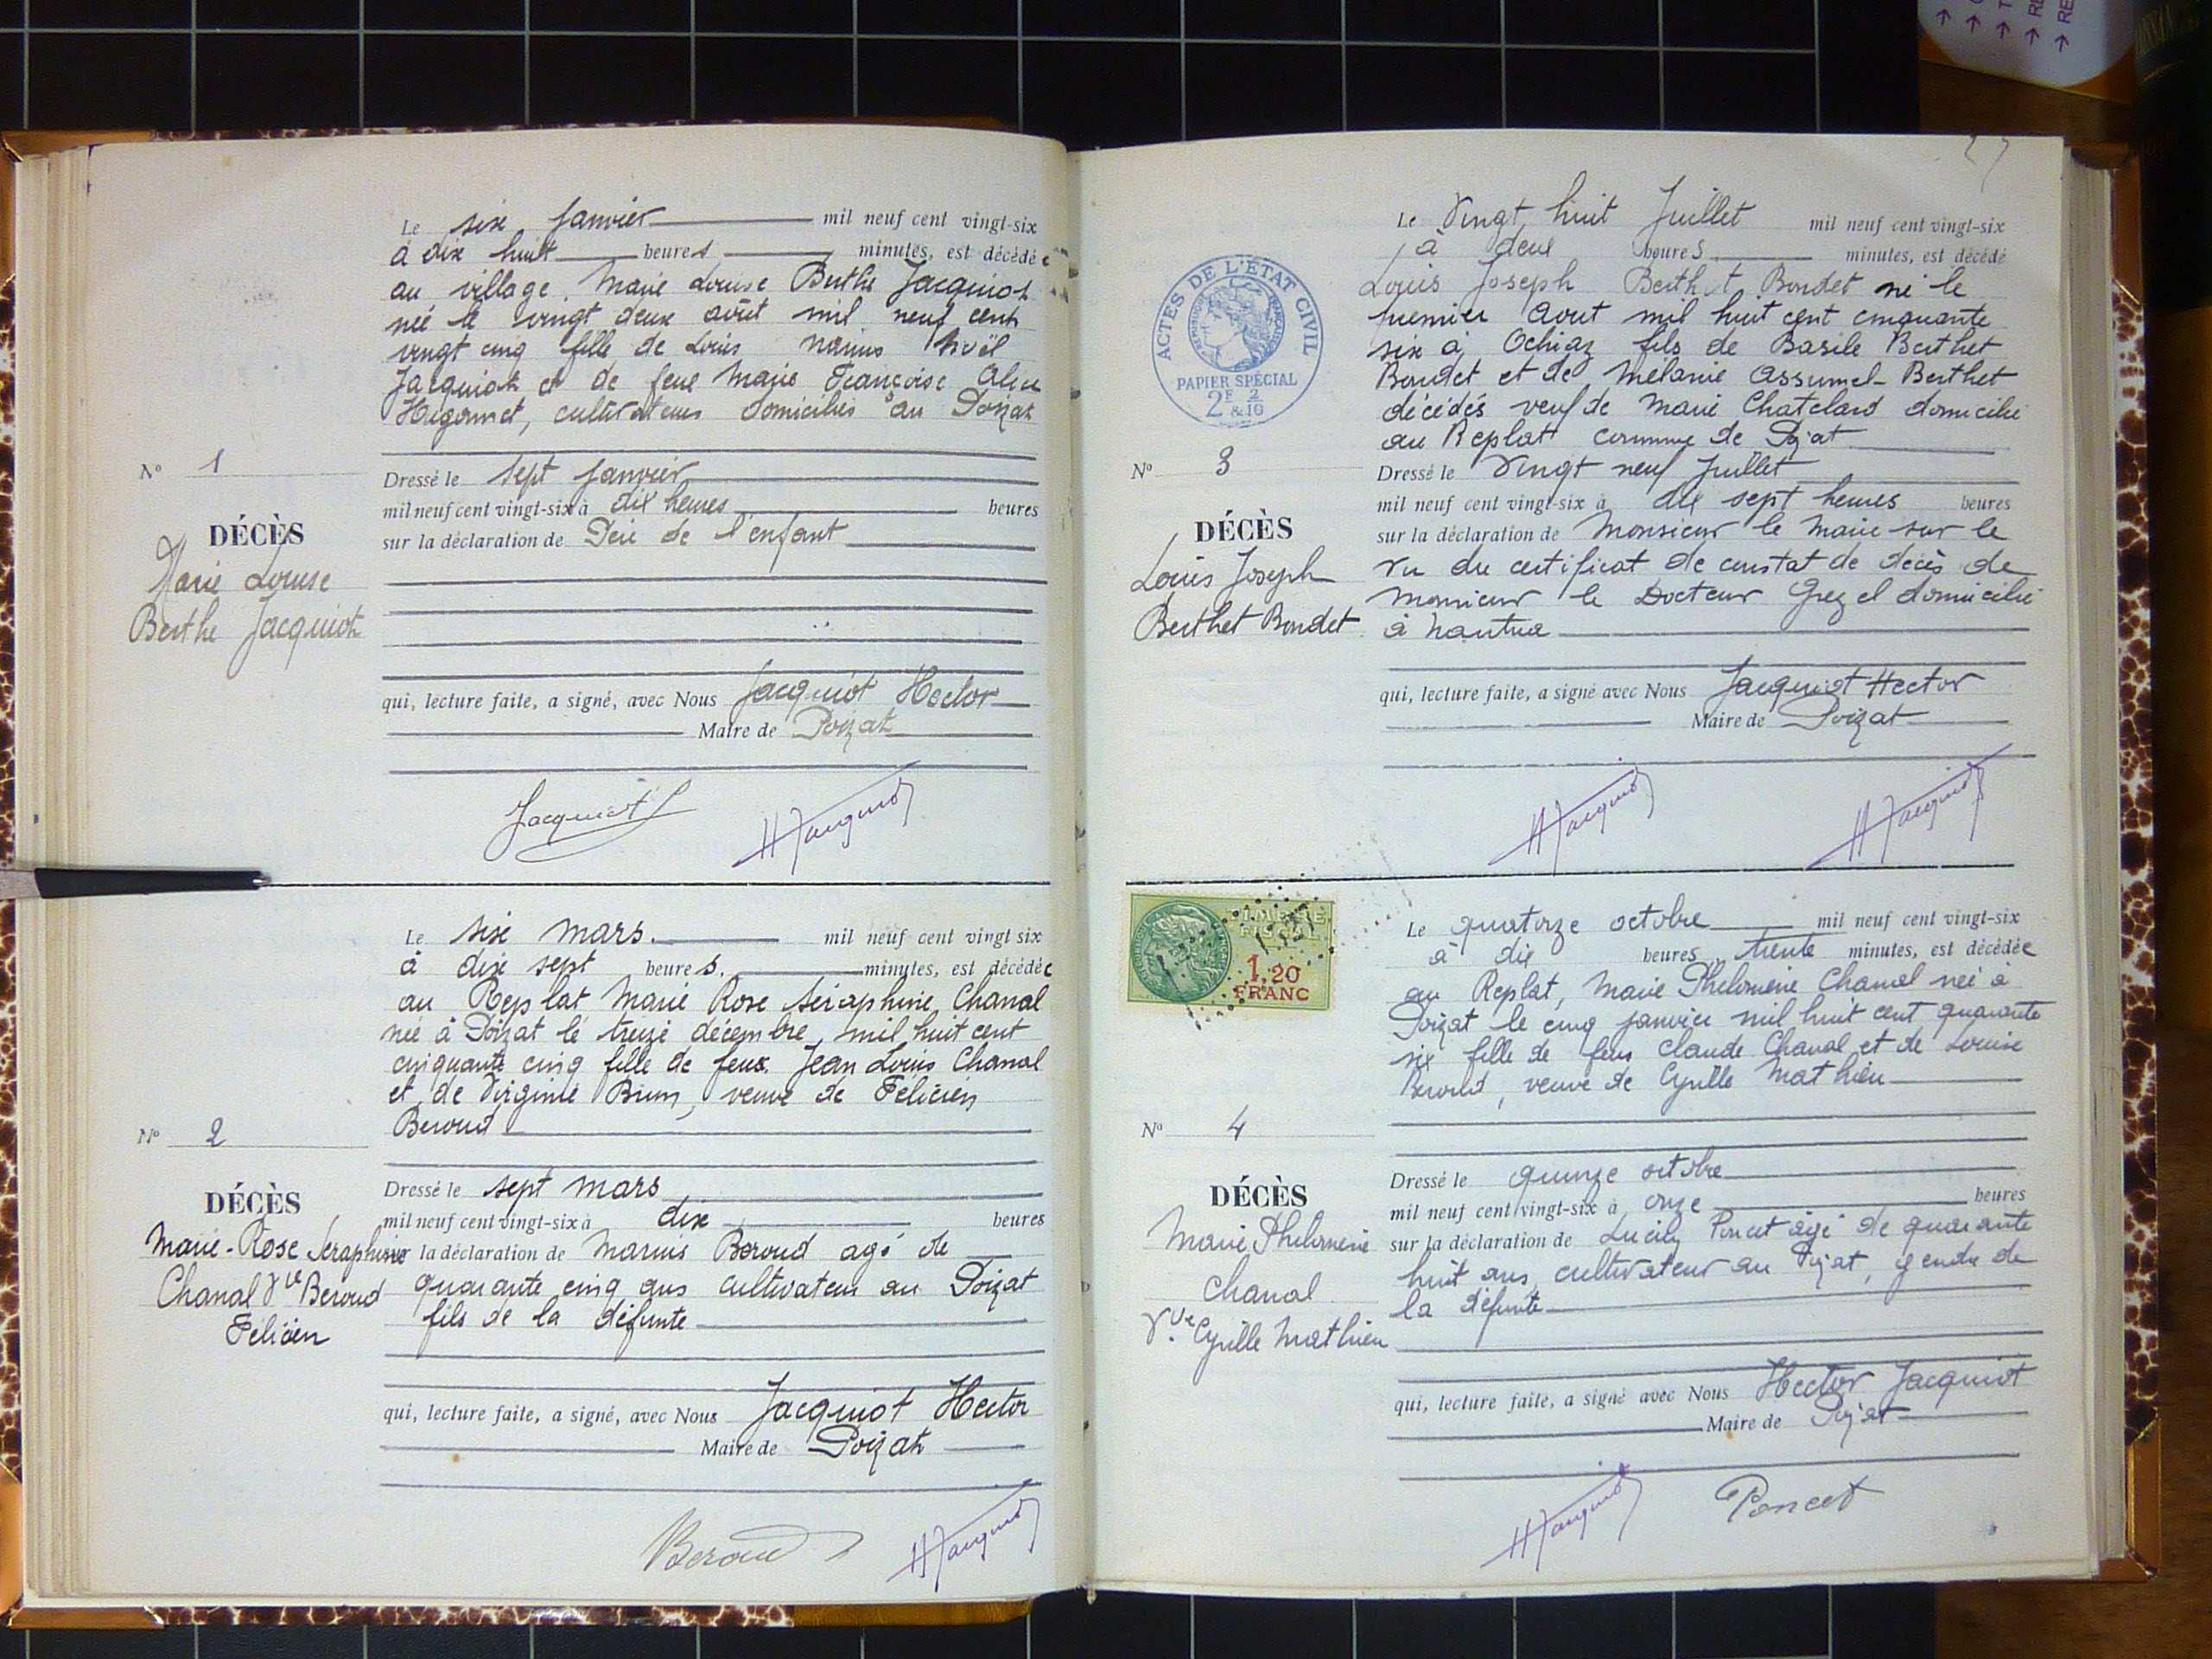 Le six janvier mil neuf cent vingt-six
à dix huit heures minutes, est décédée
au village, Marie Louise Berthe Jacquiot
née le vingt deux août mil neuf cent
vingt cinq fille de Louis Marius Noël
Jacquiot et de feue Marie Françoise Alice
Hugonnet, cultivateurs domiciliés au Poizat
N° 1
Dressé le sept janvier
mil neuf cent vingt-six à dix heures heures
DÉCÈS
sur la déclaration de Père de l'enfant
Marie Louise
Berthe Jacquiot
qui, lecture faite, a signé, avec Nous Jacquiot Hector
Maire de Poizat
Jacquiot
H Jacquiot
Le six mars. mil neuf cent vingt six
à dix sept heures. minutes, est décédée
au Replat Marie Rose Séraphine Chanal
née à Poizat le treize décembre mil huit cent
cinquante cinq fille de feux Jean Louis Chanal
et de Virginie Brun, veuve de Félicien
Beroud
N° 2
Dressé le sept mars
DÉCÈS
mil neuf cent vingt-six à dix heures
Marie-Rose Séraphine
sur la déclaration de Marius Beroud agé de
Chanal Vve Beroud
quarante cinq ans cultivateur au Poizat
Félicien
fils de la défunte
qui, lecture faite, a signé, avec Nous Jacquiot Hector
Maire de Poizat
Beroud
H Jacquiot
27
Le Vingt huit Juillet mil neuf cent vingt-six
à deux heures minutes, est décédé
Louis Joseph Berthet Bondet né le
premier Aout mil huit cent cinquante
six à Ochiaz fils de Basile Berthet
Bondet et de Mélanie Assumel-Berthet
décédés veuf de Marie Chatelard domicilié
au Replat commune de Poizat
ACTES DE L'ÉTAT CIVIL
RÉPUBLIQUE FRANÇAISE
PAPIER SPÉCIAL
2F & 2/10
N° 3
Dressé le Vingt neuf Juillet
mil neuf cent vingt-six à dix sept heures heures
DÉCÈS
sur la déclaration de Monsieur le Maire sur le
Louis Joseph
vu du certificat de constat de décès de
Berthet Bondet
Monsieur le Docteur Grezel domicilié
à Nantua
qui, lecture faite, a signé avec Nous Jacquiot Hector
Maire de Poizat
H Jacquiot
H Jacquiot
TIMBRE
FISCAL
1,20
FRANC
Le quatorze octobre mil neuf cent vingt-six
à dix heures trente minutes, est décédée
au Replat, Marie Philomène Chanal née à
Poizat le cinq janvier mil huit cent quarante
six fille de feus Claude Chanal et de Louise
Beroud, veuve de Cyrille Mathieu
N° 4
Dressé le quinze octobre
DÉCÈS
mil neuf cent vingt-six à onze heures
Marie Philomène
sur la déclaration de Poncet âgé de quarante
Chanal
huit ans, cultivateur au Poizat, gendre de
Vve Cyrille Mathieu
la défunte
qui, lecture faite, a signé avec Nous Hector Jacquiot
Maire de Poizat
H Jacquiot
Poncet